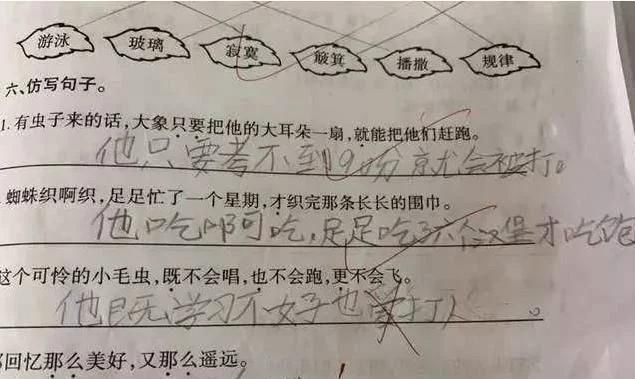 游泳 玻璃 寂寞 簸箕 播撒 规律
六、仿写句子。
1.有虫子来的话,大象只要把他的大耳朵一扇,就能把他们赶跑。
他只要考不到90分就会被打。
.蜘蛛织啊织,足足忙了一个星期,才织完那条长长的围巾。
他吃啊吃,足足吃了六个汉堡才吃饱
这个可怜的小毛虫,既不会唱,也不会跑,更不会飞。
他既学习不好也掌打人。
回忆那么美好,又那么遥远。